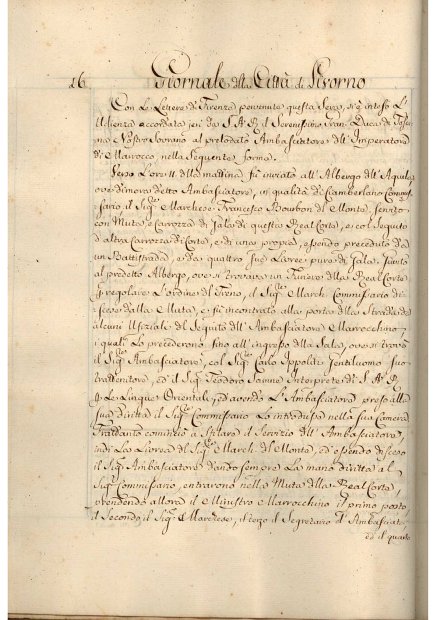 26. Giornale della Città di Livorno
Con le Lettere di Firenze pervenute questa Sera, si è inteso l'
Udienza accordata jeri da S. A. R. il Serenissimo Gran-Duca di Tosca-
na Nostro Sovrano al prelodato Ambasciatore dell'Imperatore
di Marrocco, nella seguente forma.
Verso l'ore 11 della mattina, fu inviato all'Albergo dell'Aquila
ove dimora detto Ambasciatore, in qualità di Ciamberlano Commis-
sario il Sigre. Marchese Francesco Bourbon del Monte, servito
con Muta e Carrozza di Gala di questa Real Corte, e col Seguito
d'altra Carrozza di Corte, e di una propria, essendo preceduto da
un Battistrada, e da quattro sue Livree pure di Gala. Giunto
al predetto Albergo, ove si trovava un Foriere della Real Corte
p. regolare l'ordine del Treno, il Sigre. March. Commissario di-
scese dalla Muta, e fu incontrato alla porta della Strada da
alcuni Uffiziali del Seguito dell'Ambasciatore Marrocchino
i quali lo precederono fino all'ingresso della Sala, ove si trovò
il Sigre. Ambasciatore, col Sigre. Carlo Ippoliti Gentiluomo suo
trattenitore, ed il Sigre. Teodoro Interprete di S. A. R.
p. le Lingue Orientali, ed avendo l'Ambasciatore preso alla
sua diritta il Sigre. Commissario lo introdusse nella sua Camera
Frattanto cominciò a sfilare il Servizio dell'Ambasciatore,
indi la Livrea del Sigre. March. del Monte, ed essendo disceso
il Sigre. Ambasciatore dando sempre la mano diritta al
Sigre. Commissario, entrarono nella Muta della Real Corte,
prendendo allora il Ministro Marrocchino il primo posto,
il secondo il Sigre. Marchese, il terzo il Segretario d'Ambasciata
ed il quarto